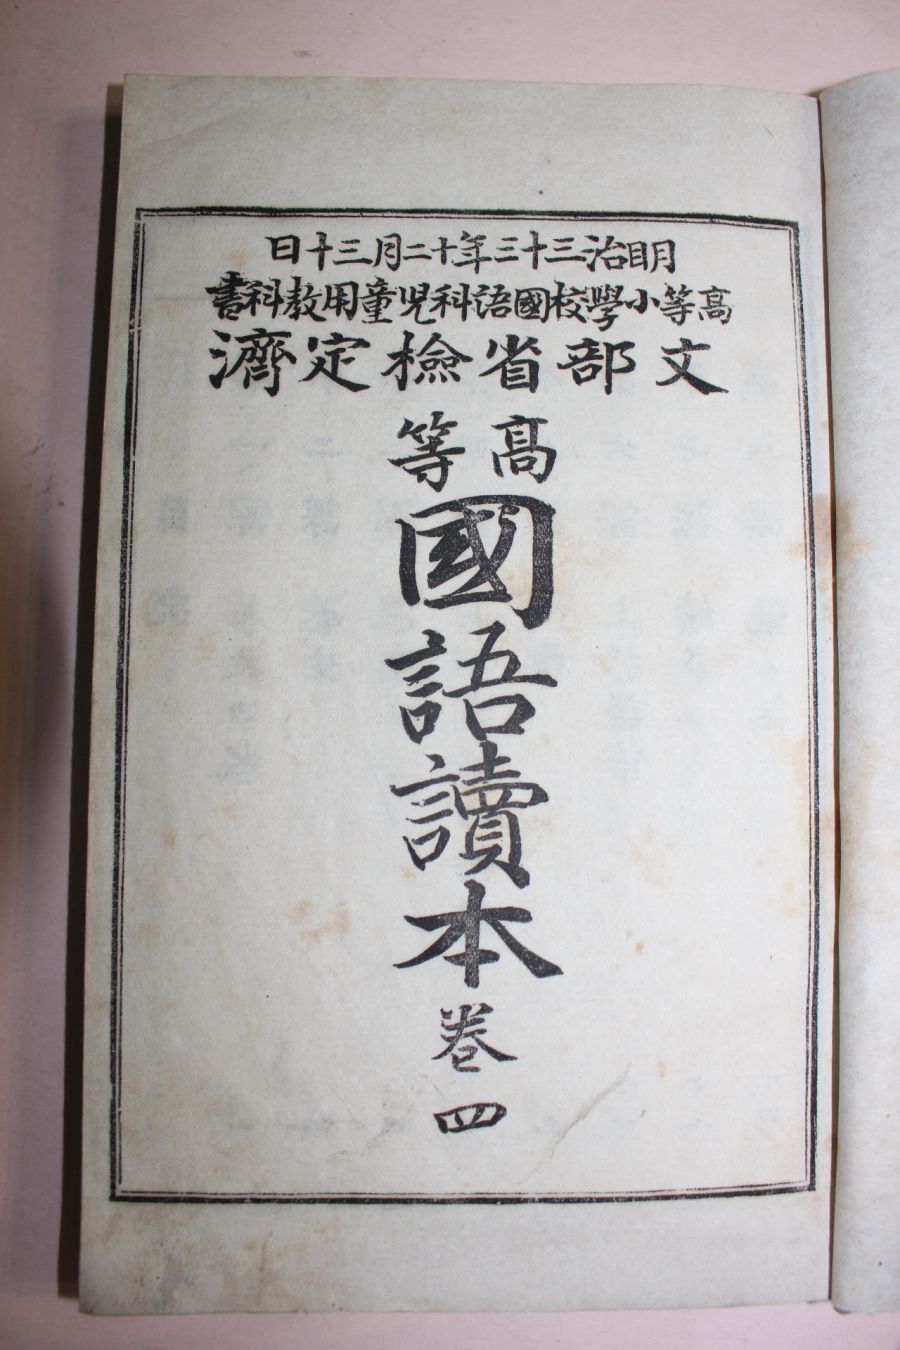 明治三十三年十二月三十日
高等小學校國語科児童用教科書
文部省檢定濟
高等
國語讀本
巻四